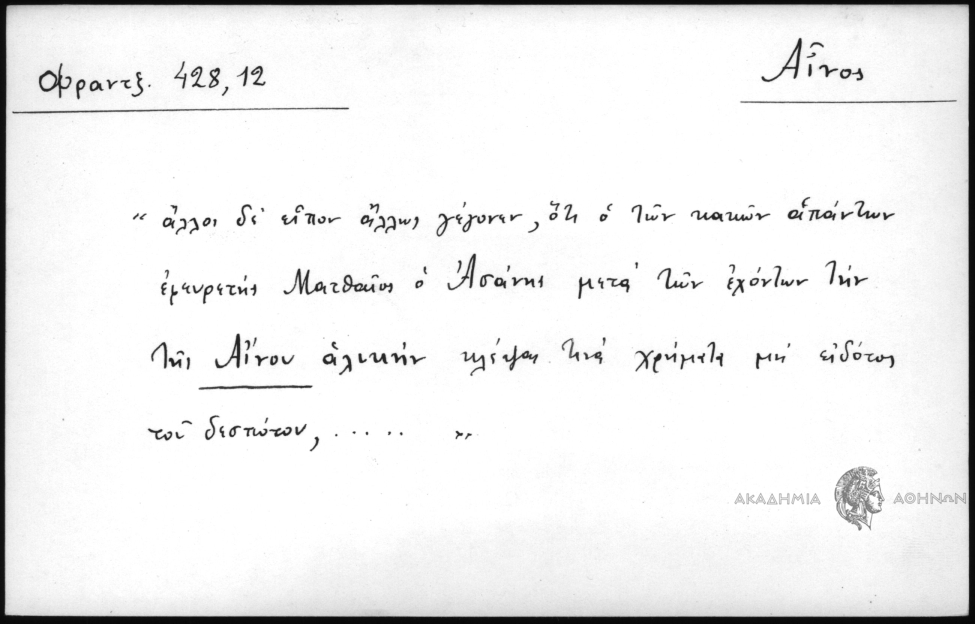 Φραντζ. 428, 12
Αἶνος
“ ἄλλοι δὲ εἶπον ἄλλως γέγονεν, ὅτι ὁ τῶν κακῶν ἁπάντων
ἐφευρετὴς Ματθαῖος ὁ Ἀσάνης μετὰ τῶν ἐχόντων τὴν
τῆς Αἴνου ἁλικὴν κλέψας τινὰ χρήματα μὴ εἰδότος
τοῦ δεσπότου, ..... ”
ΑΚΑΔΗΜΙΑ ΑΘΗΝΩΝ